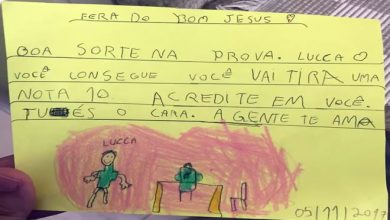 FERA DO BOM JESUS
BOA SORTE NA PROVA. LUCCA
VOCÊ CONSEGUE VOCÊ VAI TIRA UMA
NOTA 10. ACREDITE EM VOCÊ.
TU ÉS O CARA. A GENTE TE AMA
LUCCA
05/11/201